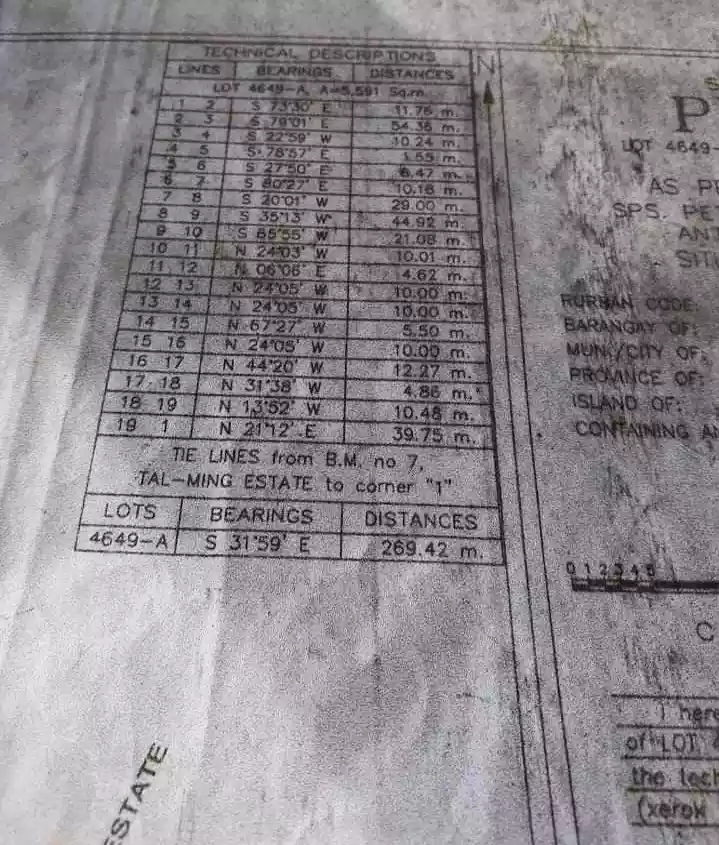 TECHNICAL DESCRIPTIONS
LINES BEARINGS DISTANCES
LOT 4649-A, A=5,591 Sq.m.
1 2 S 73°30' E 11.76 m.
2 3 S 79°01' E 54.36 m.
3 4 S 22°59' W 10.24 m.
4 5 S 78°57' E 1.55 m.
5 6 S 27°50' E 6.47 m.
6 7 S 80°27' E 10.18 m.
7 8 S 20°01' W 29.00 m.
8 9 S 35°13' W 44.92 m.
9 10 S 65°55' W 21.08 m.
10 11 N 24°03' W 10.01 m.
11 12 N 06°06' E 4.62 m.
12 13 N 24°05' W 10.00 m.
13 14 N 24°05' W 10.00 m.
14 15 N 67°27' W 5.50 m.
15 16 N 24°05' W 10.00 m.
16 17 N 44°20' W 12.27 m.
17-18 N 31°38' W 4.86 m.
18 19 N 13°52' W 10.48 m.
19 1 N 21°12' E 39.75 m.
TIE LINES from B.M. no 7,
TAL-MING ESTATE to corner "1"
LOTS BEARINGS DISTANCES
4649-A S 31°59' E 269.42 m.
N
P
LOT 4649-
AS P
SPS. PE
ANT
SIT
RURBAN CODE:
BARANGAY OF:
MUN./CITY OF:
PROVINCE OF:
ISLAND OF:
CONTAINING AN
0 1 2 3 4 5
C
I here
of LOT 4
the tech
(xerox
ESTATE